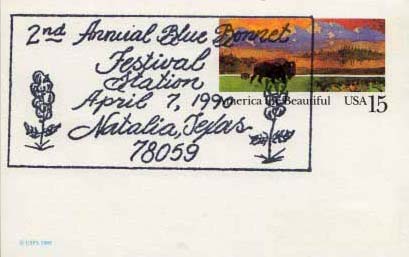 2nd Annual Blue Bonnet
Festival
Station
April 7, 1990
Natalia, Texas
78059
America the Beautiful USA 15
© USPS